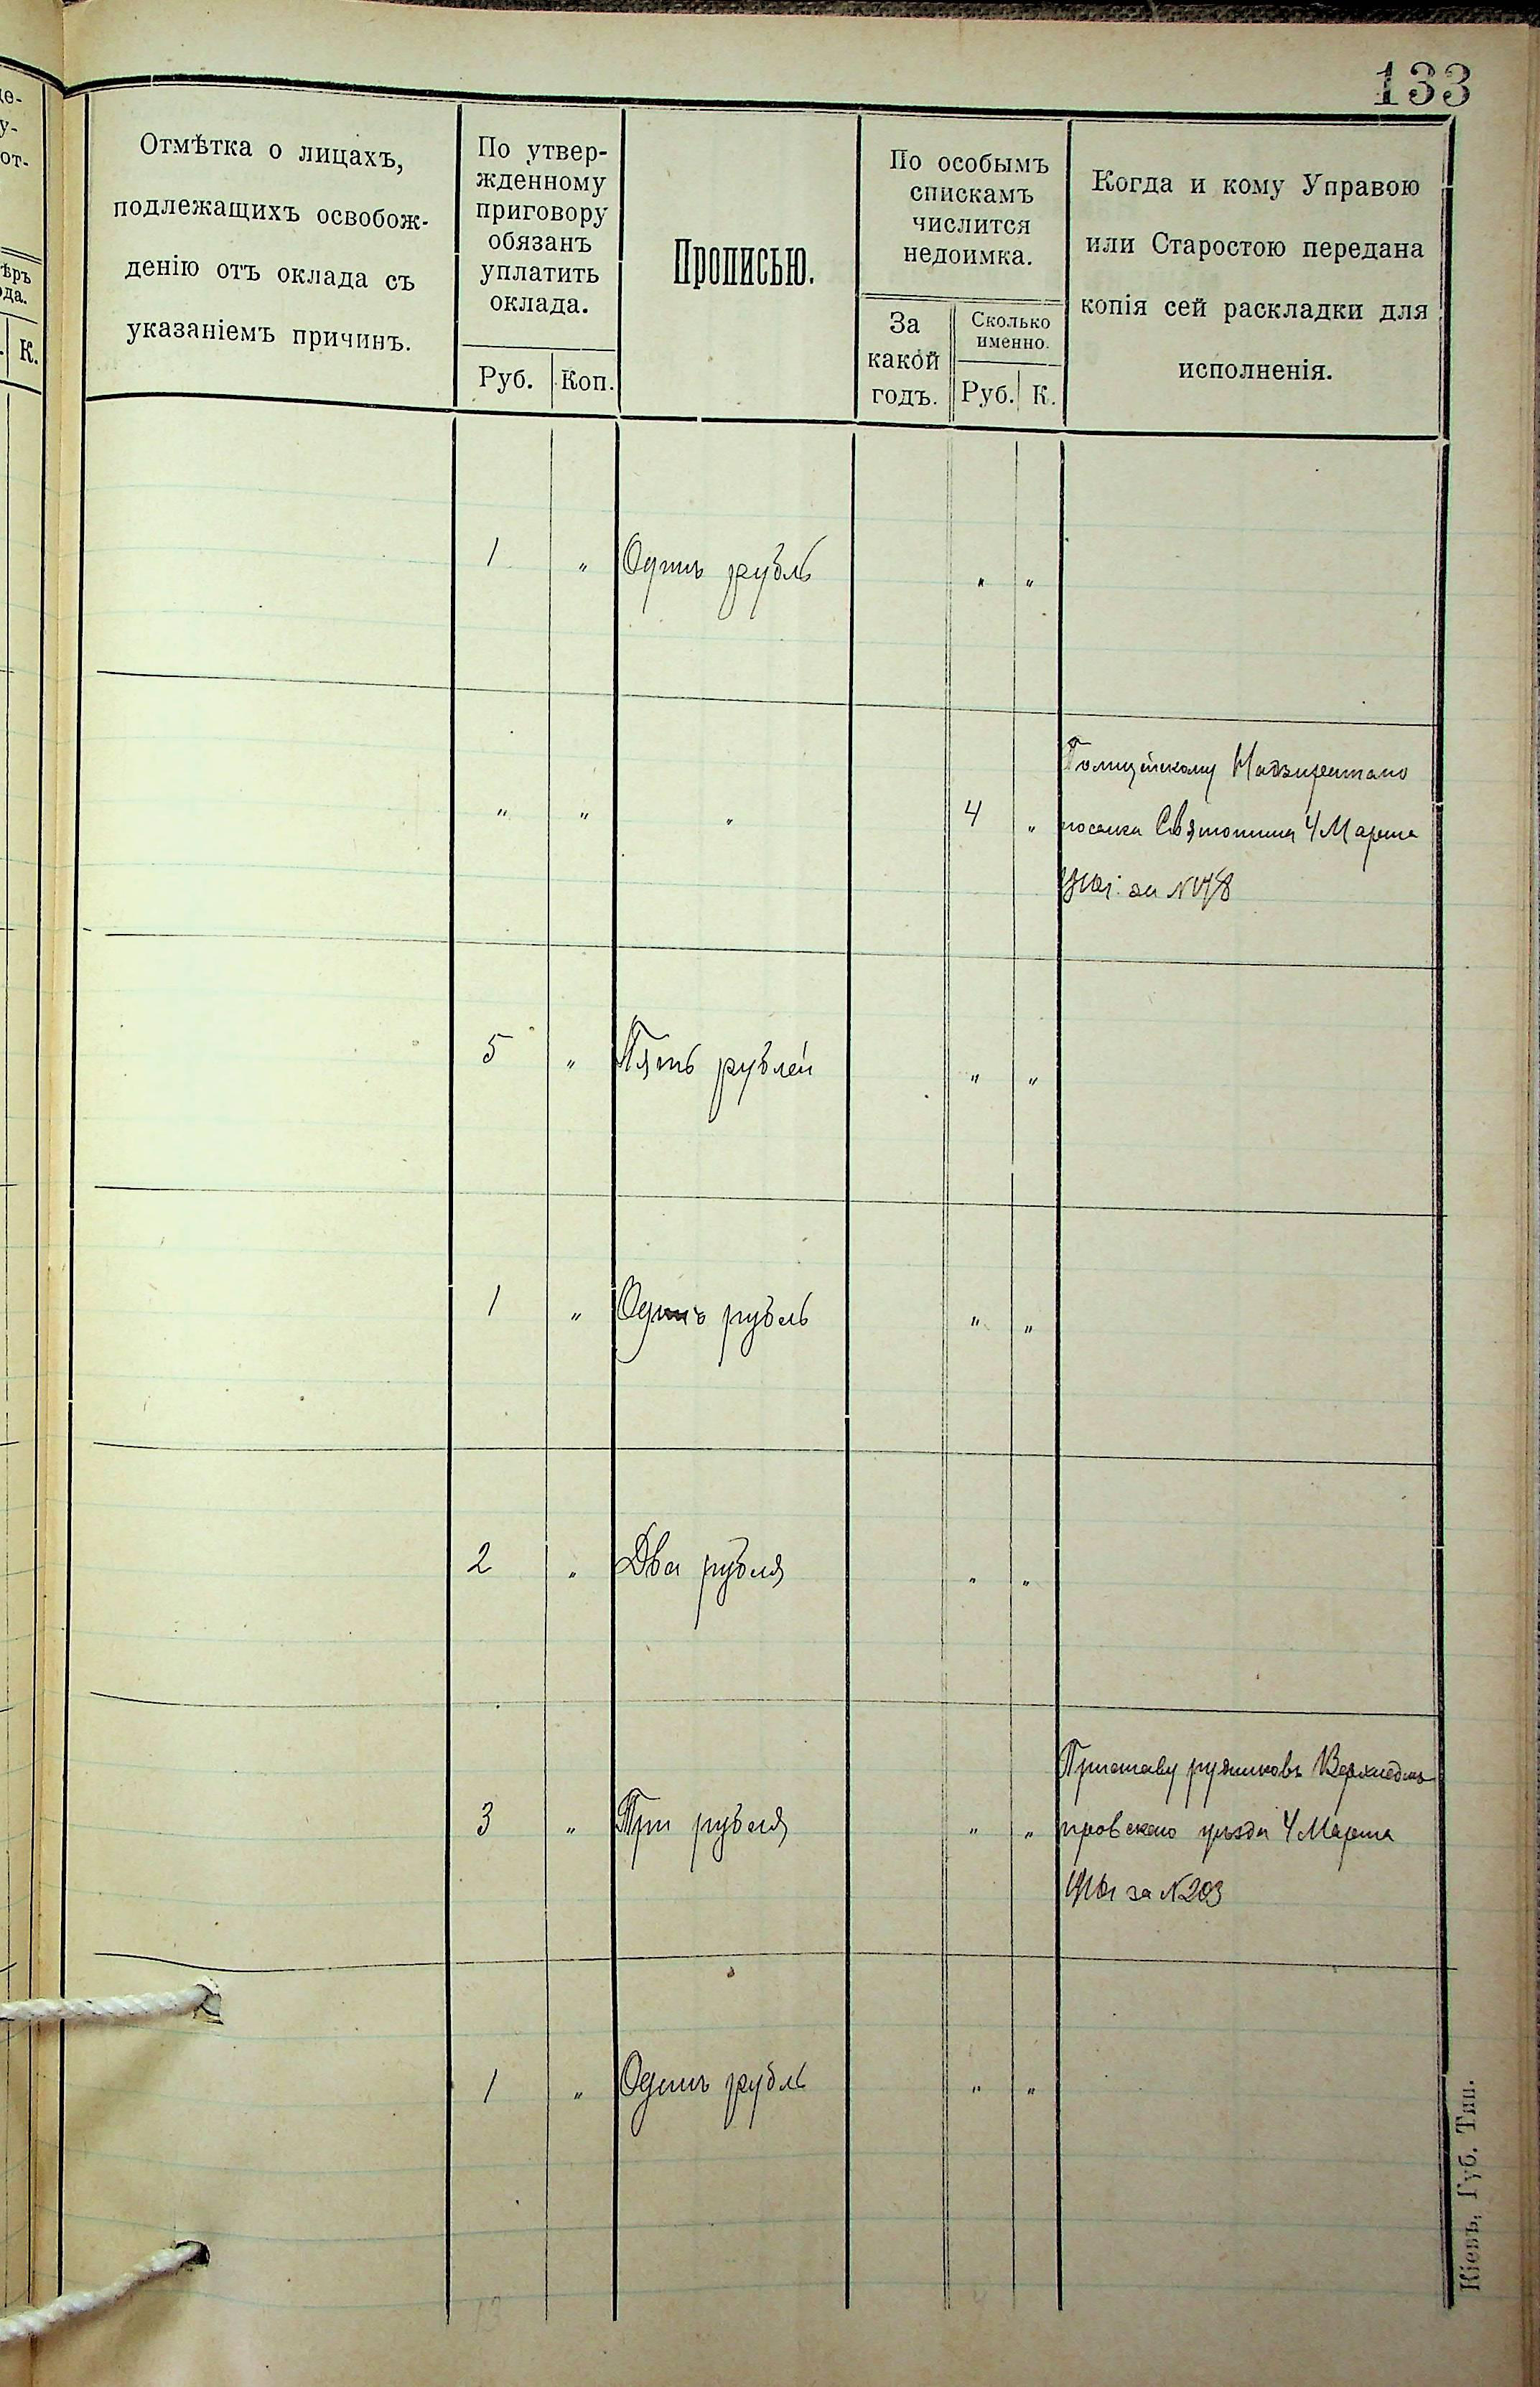 133
це-
у-
от-
ѣръ
ода.
К.
Отмѣтка о лицахъ,
подлежащихъ освобож-
денію отъ оклада съ
указаніемъ причинъ.
По утвер-
жденному
приговору
обязанъ
уплатить
оклада.
Руб. Коп.
Прописью.
По особымъ
спискамъ
числится
недоимка.
За
какой
годъ.
Сколько
именно.
Руб. К.
Когда и кому Управою
или Старостою передана
копія сей раскладки для
исполненія.
1 " Одинъ рубль " "
" " " 4 "
Полицейскому Надзирателю
поселка Святошина 4 Марта
за №
5 " Пять рублей " "
1 " Одинъ рубль " "
2 " Два рубля " "
3 " Три рубля " "
Приставу рудниковъ Верхнеднѣ
провскаго уѣзда 4 Марта
за № 203
1 " Одинъ рубль " "
13 4
Кіевъ, Губ. Тип.